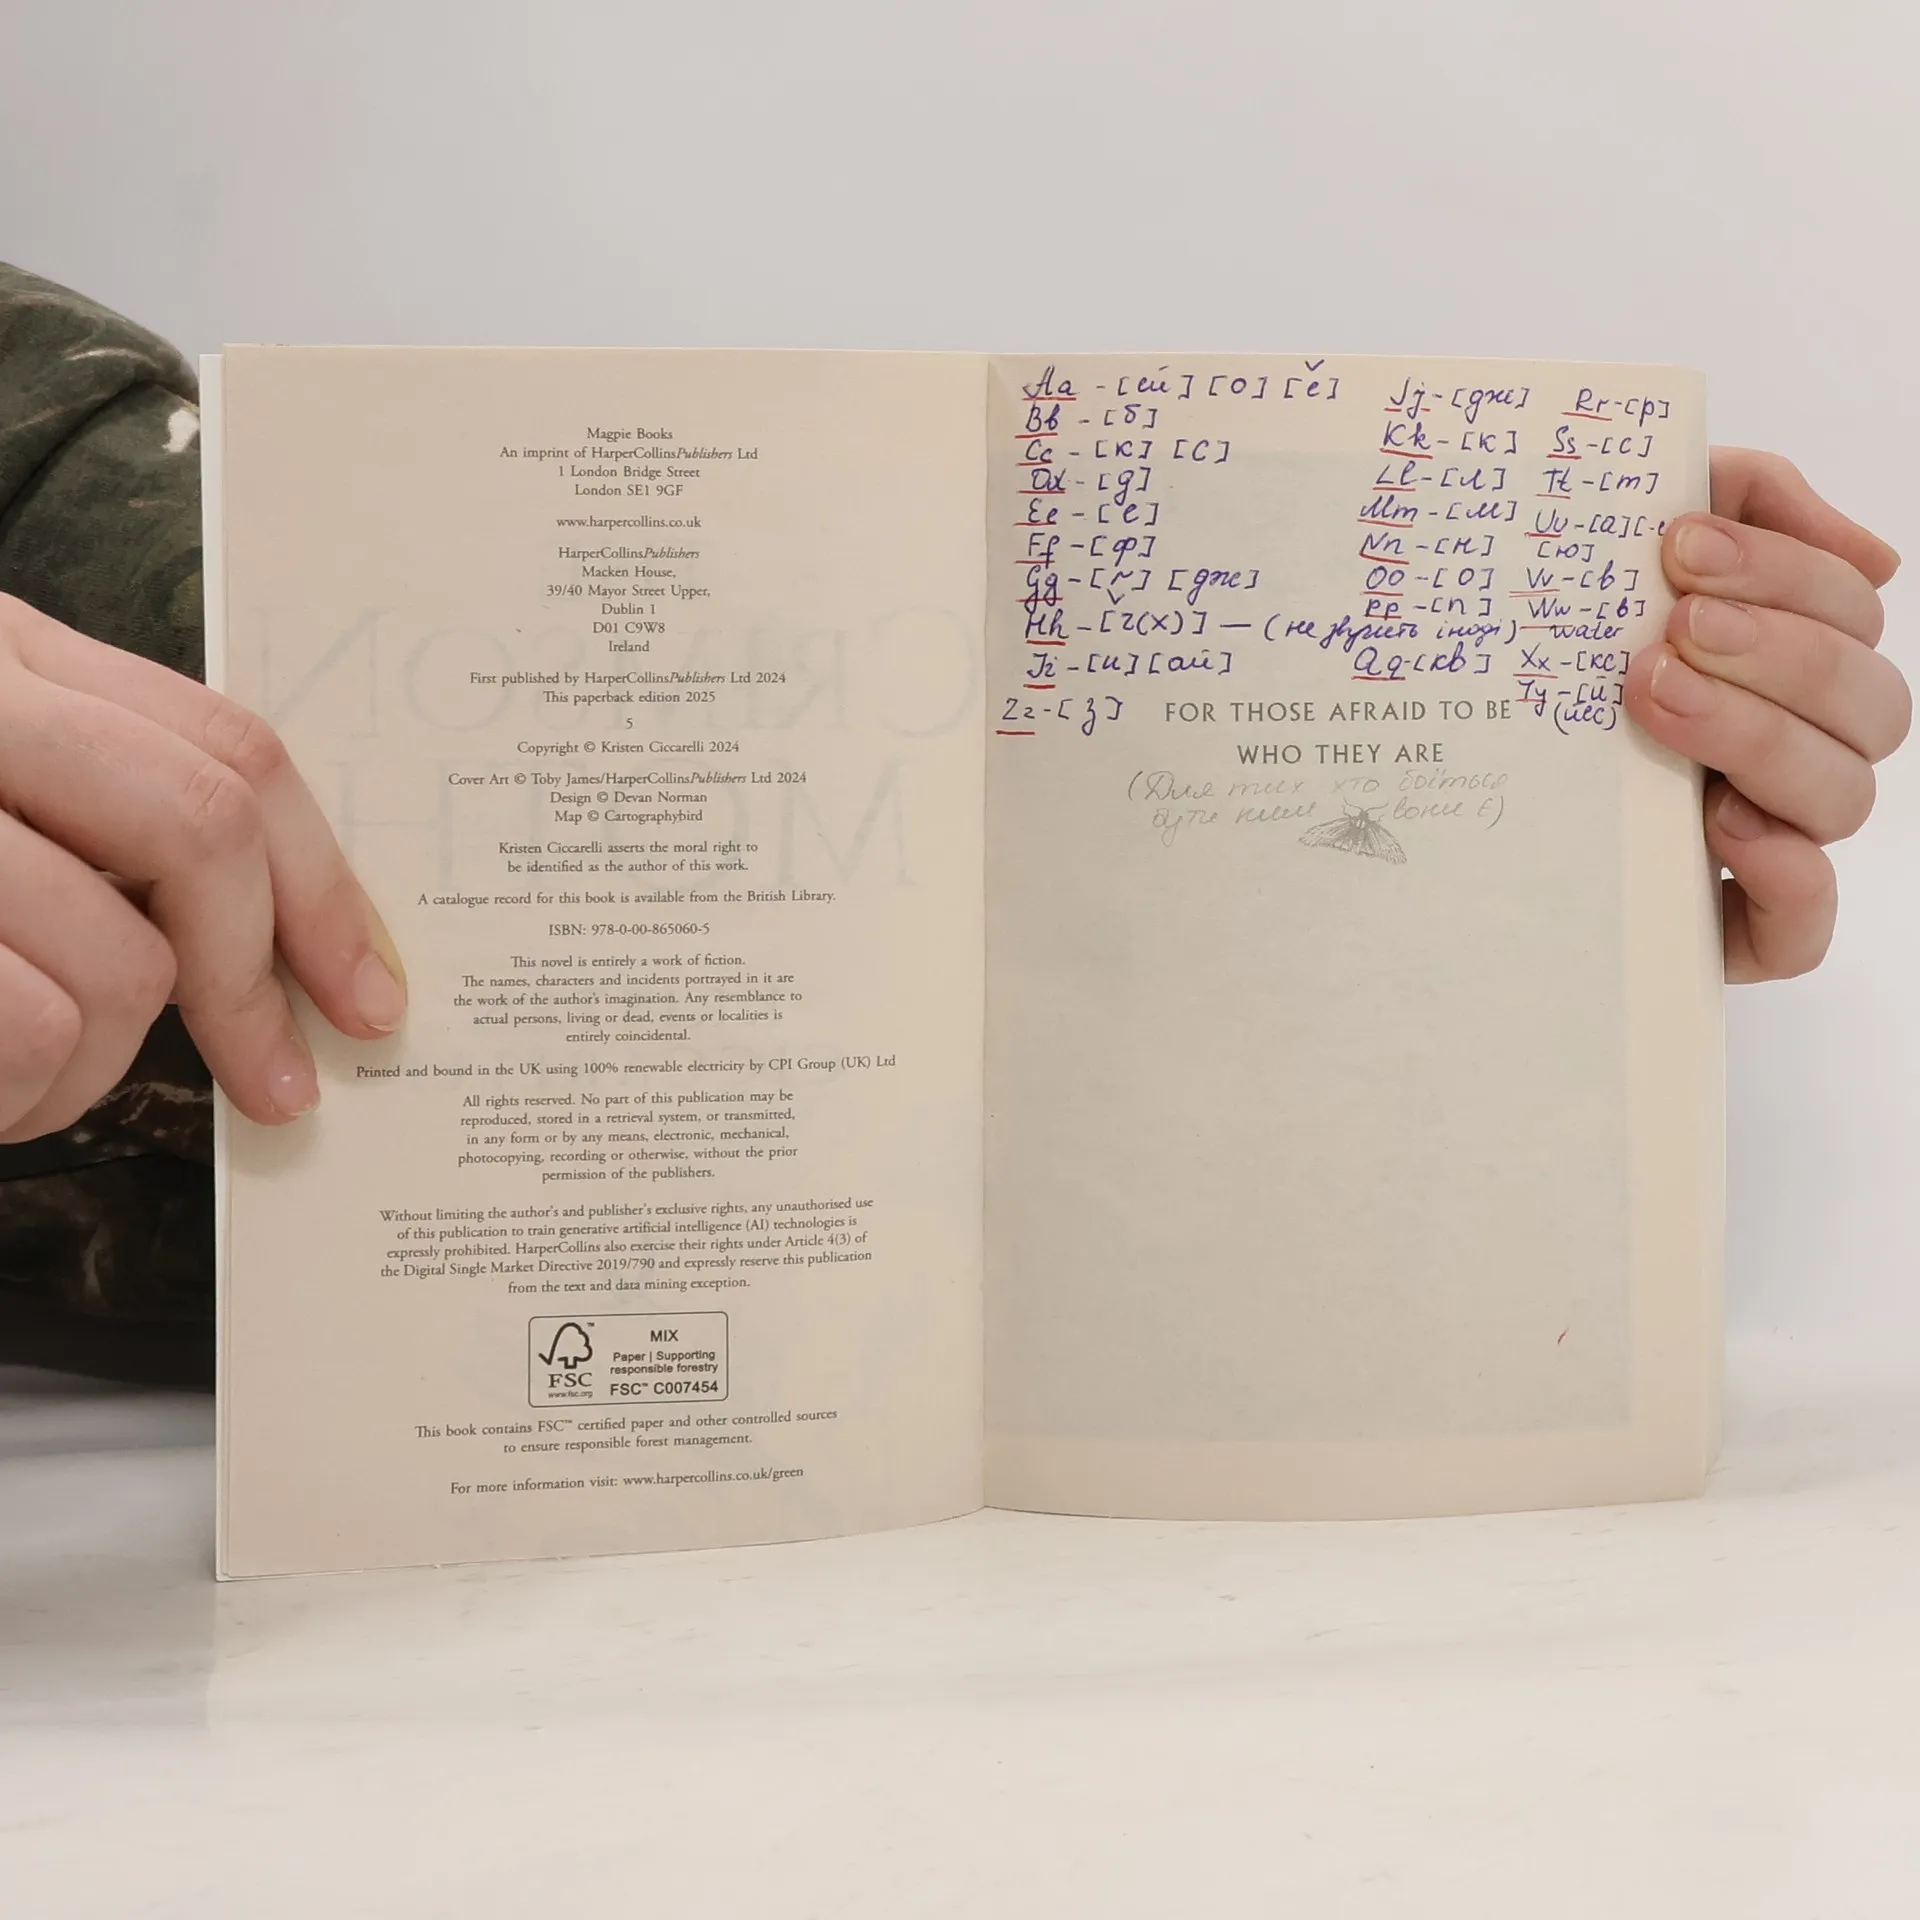 Magpie Books
An imprint of HarperCollinsPublishers Ltd
1 London Bridge Street
London SE1 9GF
www.harpercollins.co.uk
HarperCollinsPublishers
Macken House,
39/40 Mayor Street Upper,
Dublin 1
D01 C9W8
Ireland
First published by HarperCollinsPublishers Ltd 2024
This paperback edition 2025
5
Copyright © Kristen Ciccarelli 2024
Cover Art © Toby James/HarperCollinsPublishers Ltd 2024
Design © Devan Norman
Map © Cartographybird
Kristen Ciccarelli asserts the moral right to
be identified as the author of this work.
A catalogue record for this book is available from the British Library.
ISBN: 978-0-00-865060-5
This novel is entirely a work of fiction.
The names, characters and incidents portrayed in it are
the work of the author's imagination. Any resemblance to
actual persons, living or dead, events or localities is
entirely coincidental.
Printed and bound in the UK using 100% renewable electricity by CPI Group (UK) Ltd
All rights reserved. No part of this publication may be
reproduced, stored in a retrieval system, or transmitted,
in any form or by any means, electronic, mechanical,
photocopying, recording or otherwise, without the prior
permission of the publishers.
Without limiting the author's and publisher's exclusive rights, any unauthorised use
of this publication to train generative artificial intelligence (AI) technologies is
expressly prohibited. HarperCollins also exercise their rights under Article 4(3) of
the Digital Single Market Directive 2019/790 and expressly reserve this publication
from the text and data mining exception.
FSC™
www.fsc.org
MIX
Paper | Supporting
responsible forestry
FSC™ C007454
This book contains FSC™ certified paper and other controlled sources
to ensure responsible forest management.
For more information visit: www.harpercollins.co.uk/green
Aa - [ей] [о] [ě]
Bb - [б]
Cc - [к] [с]
Dd - [д]
Ee - [е]
Ff - [ф]
Gg - [г] [дже]
Hh - [г(х)] — (не звучить іноді)
Ii - [и] [ай]
Zz - [з]
Jj - [дже]
Kk - [к]
Ll - [л]
Mm - [м]
Nn - [н]
Oo - [о]
Pp - [п]
Qq - [кв]
Rr - [р]
Ss - [с]
Tt - [т]
Uu - [а]
[ю]
Vv - [в]
Ww - [в]
water
Xx - [кс]
Yy - [й]
(йес)
FOR THOSE AFRAID TO BE
WHO THEY ARE
(Для тих хто боїться
бути ким вони є)